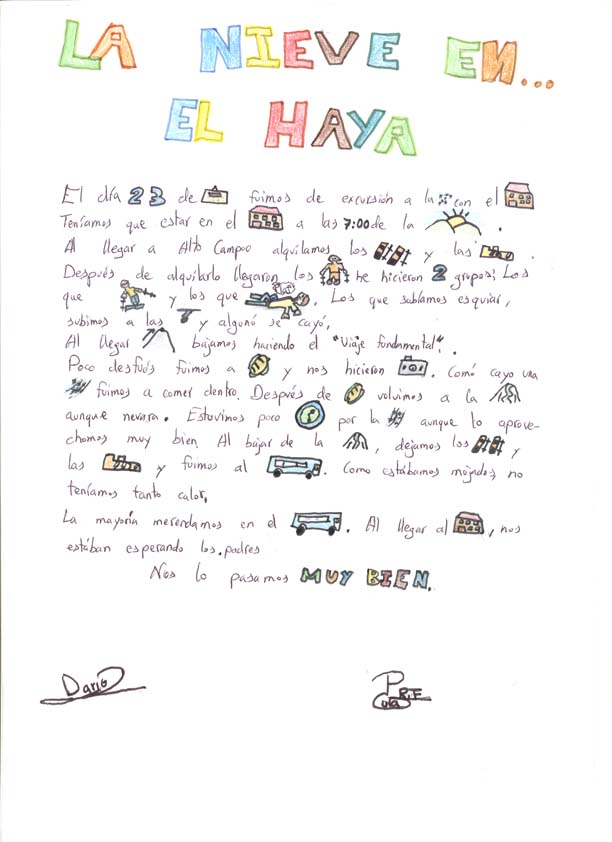 LA NIEVE EN...
EL HAYA
El día 23 de fuimos de excursión a la con el
Teníamos que estar en el a las 7:00 de la .
Al llegar a Alto Campoo alquilamos los y las .
Después de alquilarlo llegaron los he hicieron 2 grupos: Los
que y los que . Los que sabíamos esquiar,
subimos a las y algunó se cayó,
Al llegar bajamos haciendo el "Viaje fundamental".
Poco después fuimos a y nos hicieron . Comó cayo una
fuimos a comer dentro. Después de volvimos a la
aunque nevara. Estuvimos poco por la aunque lo aprove-
chamos muy bien. Al bajar de la , dejamos los y
las y fuimos al . Como estábamos mojados, no
teníamos tanto calor,
La mayoría merendamos en el . Al llegar al , nos
estában esperando los padres
Nos lo pasamos MUY BIEN.
Darío